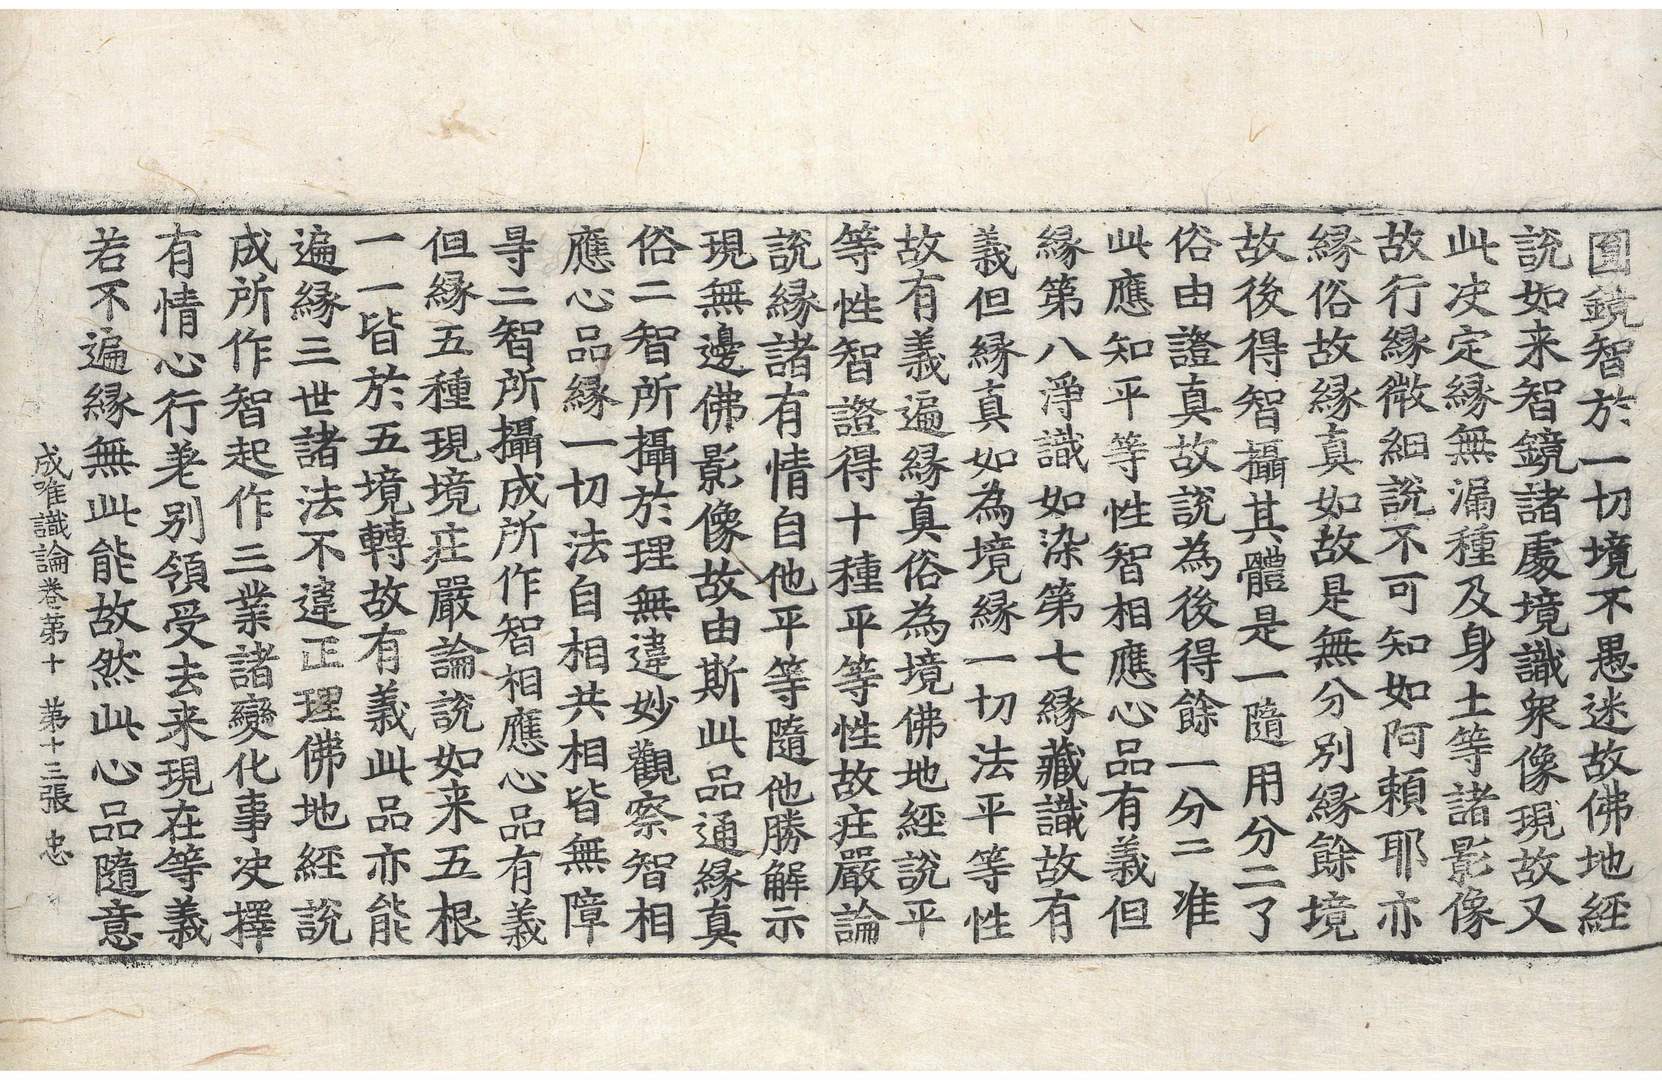 圎鏡智於一切境不愚迷故佛地經
說如来智鏡諸處境識衆像現故又
此决定緣無漏種及身土等諸影像
故行緣微細說不可知如阿賴耶亦
緣俗故緣真如故是無分別緣餘境
故後得智攝其體是一隨用分二了
俗由證真故說為後得餘一分二准
此應知平等性智相應心品有義但
緣第八淨識如染第七緣藏識故有
義但緣真如為境緣一切法平等性
故有義遍緣真俗為境佛地經說平
等性智證得十種平等性故莊嚴論
說緣諸有情自他平等隨他勝解示
現無邊佛影像故由斯此品通緣真
俗二智所攝於理無違妙觀察智相
應心品緣一切法自相共相皆無障
㝵二智所攝成所作智相應心品有義
但緣五種現境莊嚴論說如来五根
一一皆於五境轉故有義此品亦能
遍緣三世諸法不違正理佛地經說
成所作智起作三業諸變化事决擇
有情心行差別領受去来現在等義
若不遍緣無此能故然此心品隨意
成唯識論卷第十 第十三張 忠